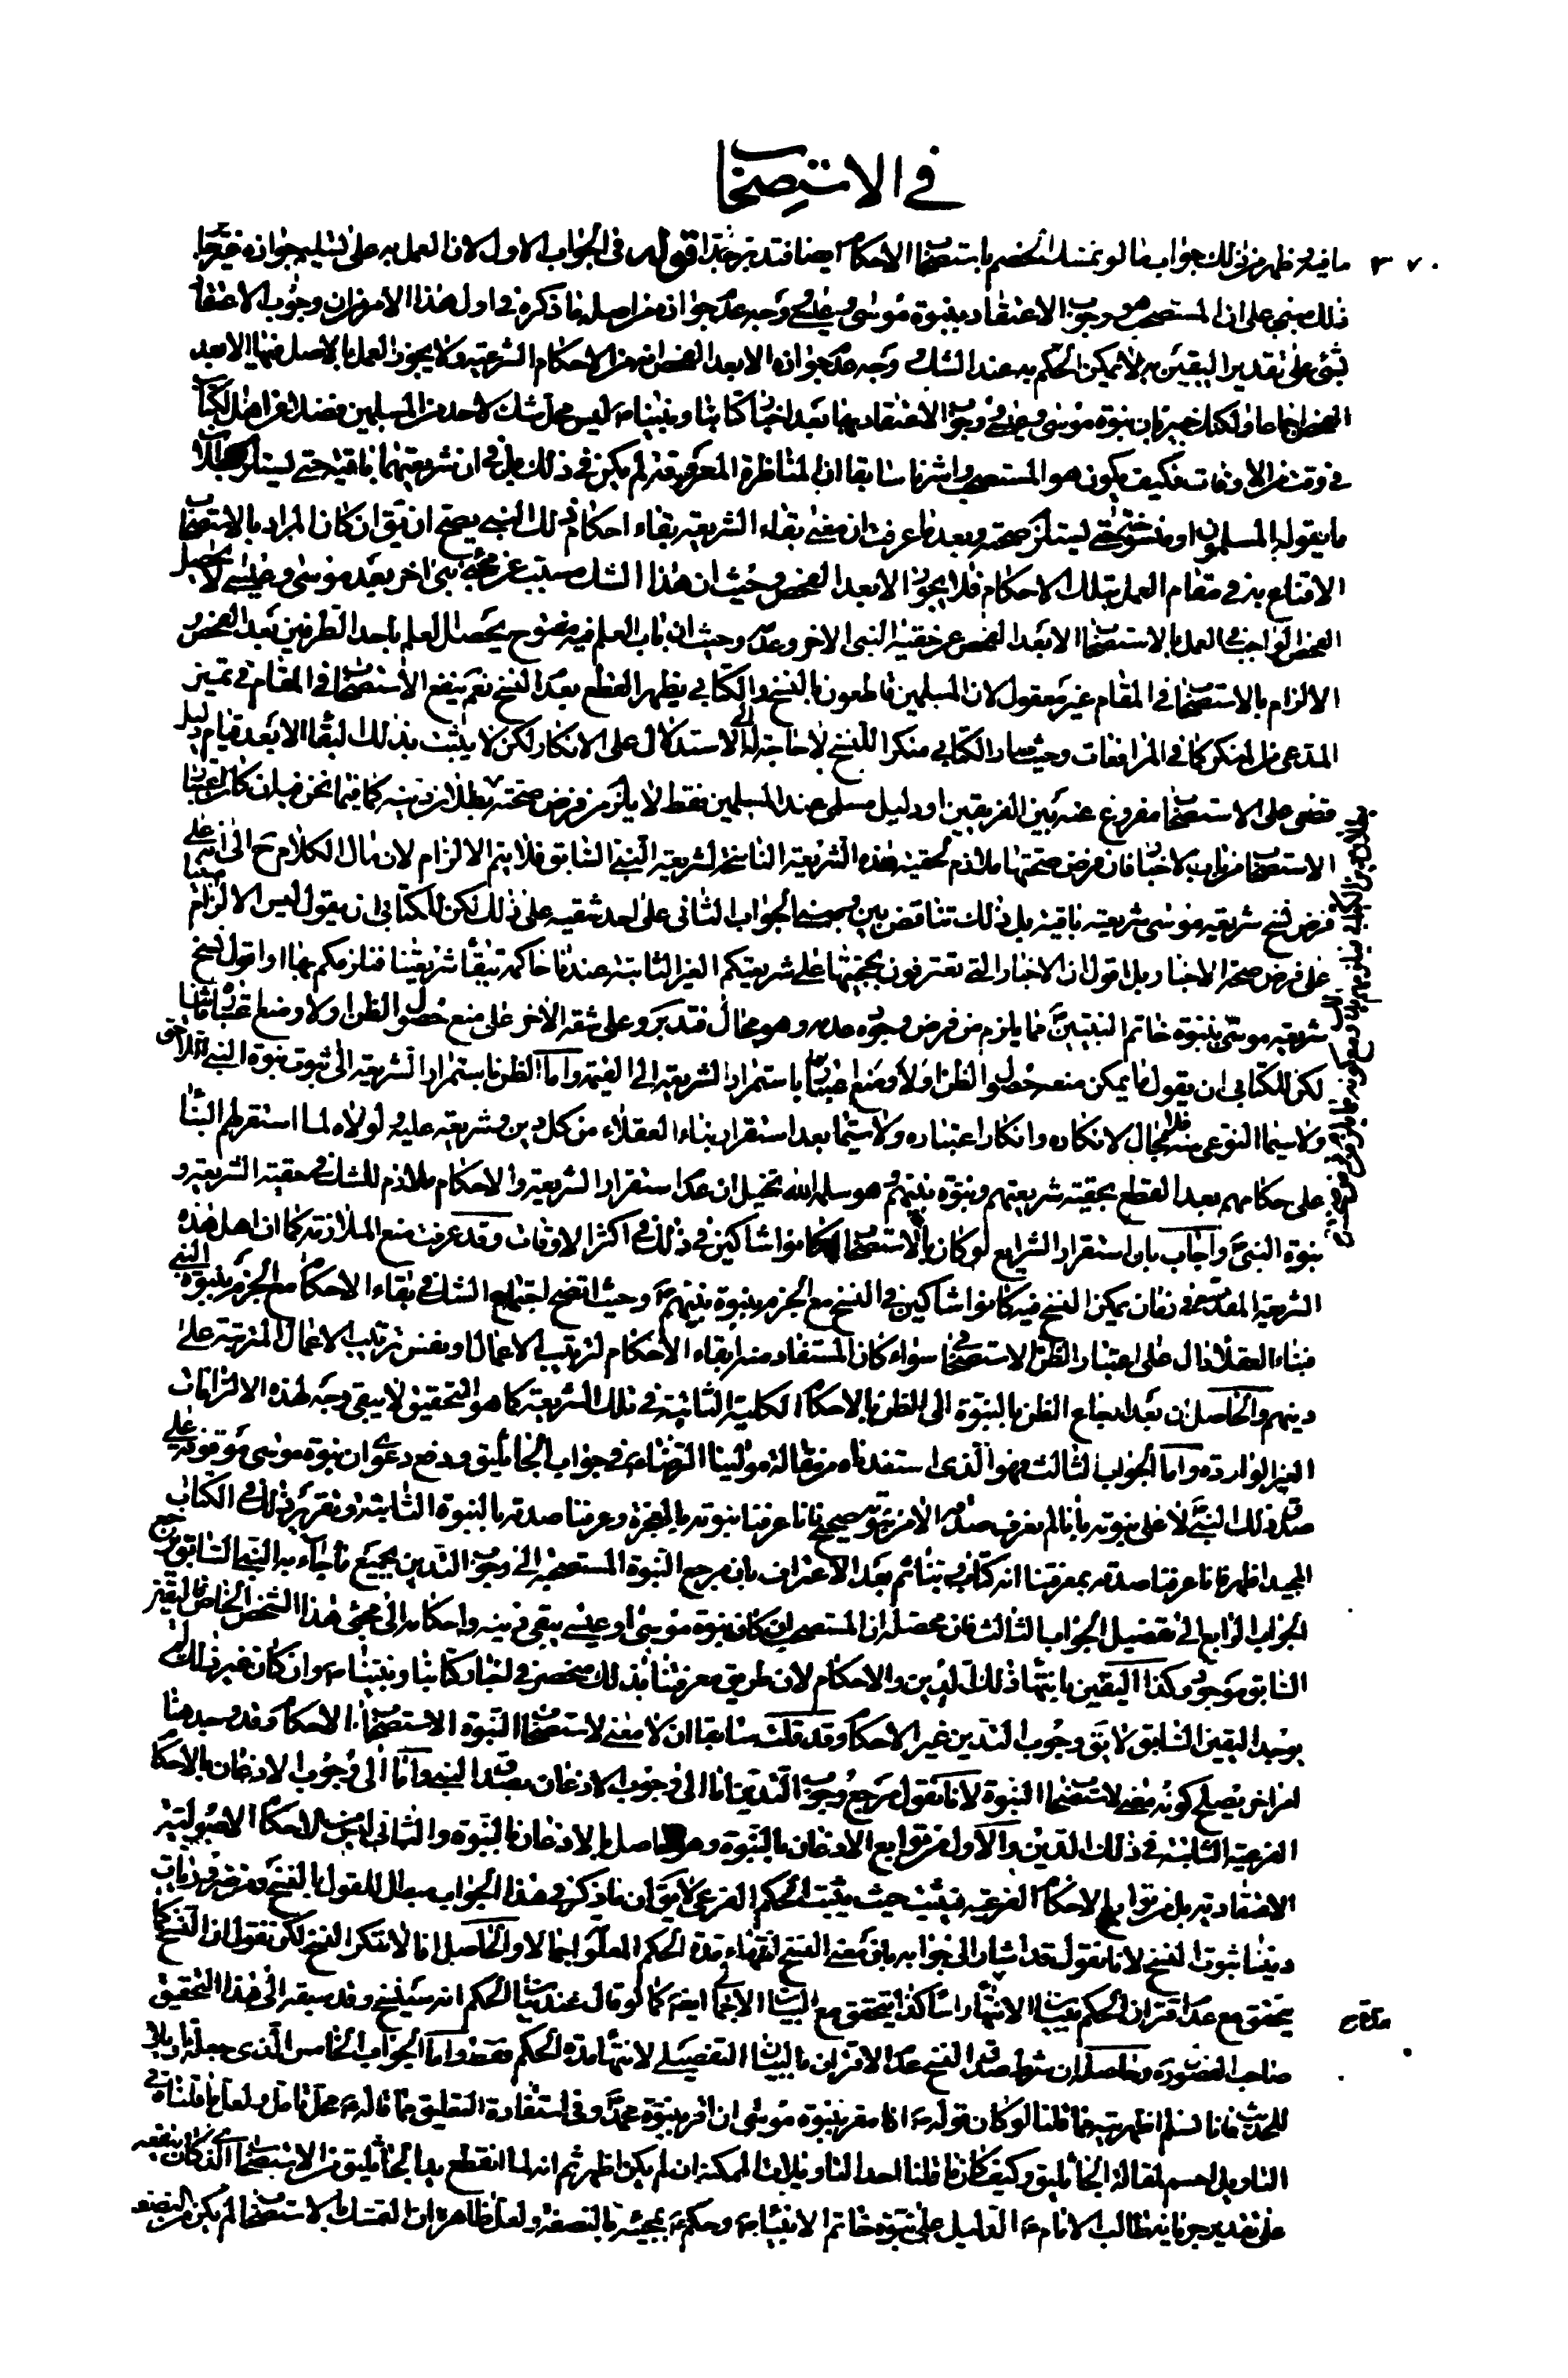 في الاستصحاب
٣٧٠
ما فيه وظهر من ذلك جواب ما لو تمسك الخصم باستصحاب الاحكام ايضا فتدبر جدا قوله في الجواب الاول لان العمل به على تسليم جوازه
ذلك مبني على ان المستصحب هو وجوب الاعتقاد بنبوة موسى وعيسى وجه عدم جوازه من اصله ما ذكره في اول هذا الامر من ان وجوب الاعتقاد
بشئ على تقدير اليقين به لا يمكن الحكم به عند الشك وجه عدم جوازه الا بعد الفحص انه من الاحكام الشرعية ولا يجوز العمل بالاصل فيها الا بعد
الفحص اجماعا ولكنك خبير بان نبوة موسى وعيسى ووجوب الاعتقاد بهما بعد اخبار كتابنا ونبينا ليس محل شك لاحد من المسلمين فضلا من اهل الكتاب
في وقت من الاوقات فكيف يكون هو المستصحب واشرنا سابقا ان المناظرة المعروفة لم يكن في ذلك بل في ان شريعتهما باقية حتى يستلزم بطلان
ما يقوله المسلمون او منسوخة حتى يستلزم صحته وبعد ما عرفت ان معنى بقاء الشريعة بقاء احكام ذلك النبي يصح ان يق ان كان المراد بالاستصحاب
الاقناع به في مقام العمل بتلك الاحكام فلا يجوز الا بعد الفحص وحيث ان هذا الشك مسبب عن مجئ نبي اخر بعد موسى وعيسى لا يحصل
الفحص الواجب في العمل بالاستصحاب الا بعد الفحص عن حقية النبي الاخر وعدمه وحيث ان باب العلم فيه مفتوح يحصل العلم باحد الطرفين بعد الفحص و
الالزام بالاستصحاب في المقام غير معقول لان المسلمين قاطعون بالنسخ والكتابي يظهر القطع بعدم النسخ نعم ينفع الاستصحاب في المقام في تميز
المدعي من المنكر كما في المرافعات وحيث صار الكتابي منكرا للنسخ لا حاجة له الى الاستدلال على الانكار لكن لا يثبت بذلك البقاء الا بعد قيام دليل
قطعي على الاستصحاب مفروغ عنه بين الفريقين او دليل مسلم عند المسلمين فقط لا يلزم من فرض صحته بطلان دينه كما فيما نحن فيه ان كان اعتبار
الاستصحاب من باب الاخبار فان فرض صحتها ملازم لحقية هذه الشريعة الناسخة لشريعة النبي السابق فلا يتم الالزام لان مال الكلام ح الى انه على
فرض نسخ شريعة موسى شريعته باقية بل ذلك تناقض بين وبه يتم الجواب الثاني على احد شقيه على ذلك لكن للكتابي ان يقول ليس الالزام مبنيا
على فرض صحة الاخبار بل اقول ان الاخبار التي تعترفون بحجيتها على شريعتكم الغير الثابتة عندنا حاكمة ببقاء شريعتنا فنلزمكم بها او اقول نسخ
شريعة موسى بنبوة خاتم النبيين مما يلزم من فرض وجوده عدمه وهو محال فتدبر وعلى شقه الاخر على منع حصول الظن اولا ومنع اعتباره ثانيا
لكن للكتابي ان يقول ما يمكن منعه حصول الظن اولا ومنع اعتباره باستمرار الشريعة الى القيمة واما الظن باستمرار الشريعة الى ثبوت نبوة النبي اللاحق
ولا سيما النوعي منه فلا مجال لانكاره وانكار اعتباره ولا سيما بعد استقرار بناء العقلاء من كل دين وشريعة عليه لولاه لما استقر لهم البناء
على احكامهم بعد القطع بحقية شريعتهم ونبوة نبيهم وهو سلمه الله تخيل ان عدم استقرار الشريعة والاحكام ملازم للشك في حقية الشريعة و
نبوة النبي واجاب بان استقرار الشرايع لو كان بالاستصحاب لكانوا شاكين في ذلك في اكثر الاوقات وقد عرفت منع الملازمة كما ان اهل هذه
الشريعة المقدسة في زمان يمكن النسخ فيه كانوا شاكين في النسخ مع الجزم بنبوة نبيهم وحيث اتضح اجتماع الشك في بقاء الاحكام مع الجزم بنبوة النبي
فبناء العقلاء دال على اعتبار الظن الاستصحابي سواء كان المستفاد منه ابقاء الاحكام لترتيب الاعمال او نفس ترتيب الاعمال المترتبة على
دينهم والحاصل ان بعد ارجاع الظن بالنبوة الى الظن بالاحكام الكلية الثابتة في تلك الشريعة كما هو التحقيق لا يبقى وجه لهذه الالتزامات
الغير الواردة واما الجواب الثالث فهو الذي استفدناه من مقالة مولينا الرضا في جواب الجاثليق ودفع دعوى ان نبوة موسى موقوفة على
صدق ذلك النبي لا على نبوته بانا لم نعرف صدقه الا من نبوته صحيح فانا عرفنا نبوته بالمعجزة وعرفنا صدقه بالنبوة الثابتة وتقرير ذلك في الكتاب
المجيد اظهر فانا عرفنا صدقه بمعرفتنا انه كتاب ربنا ثم بعد الاعتراف بان مرجع النبوة المستصحبة الى وجوب التدين بجميع ما جاء به النبي السابق يرجع
الجواب الرابع الى تفصيل الجواب الثالث فان محصله ان المستصحب ان كان نبوة موسى او عيسى يبقى دينه واحكامه الى مجئ هذا الشخص الخاص فاليقين
السابق موجود وكذا اليقين بانتهاء ذلك الدين والاحكام لان طريق معرفتنا بذلك منحصر في اخبار كتابنا ونبينا وان كان غير ذلك لم
يوجد اليقين السابق لا يق وجوب التدين غير الاحكام وقد قلت سابقا ان لا معنى لاستصحاب النبوة الا استصحاب الاحكام وقد وجد هنا
امر اخر يصلح كونه معنى لاستصحاب النبوة لانا نقول مرجع وجوب التدين اما الى وجوب الاذعان بصدق النبي واما الى وجوب الاذعان بالاحكام
الفرعية الثابتة في ذلك الدين والاول من توابع الاذعان بالنبوة وهو حاصل بالاذعان بالنبوة والثاني ليس من الاحكام الاصولية
الاعتقادية بل من توابع الاحكام الفرعية فيثبت حيث يثبت الحكم الفرعي لا يق ان ما ذكر في هذا الجواب مبطل للقول بالنسخ ومن ضروريات
ديننا ثبوت النسخ لانا نقول قد اشار الى جوابه بان معنى النسخ انتهاء مدة الحكم المعلوم اجمالا والحاصل انا لا ننكر النسخ لكن نقول ان النسخ كما
يتحقق مع عدم اقتران الحكم ببيان الانتهاء راسا كذا يتحقق مع البيان الاجمالي ايضا كما لو قال عند بيان الحكم انه سينسخ وقد سبقه الى هذا التحقيق
صاحب الفصول وحاصله ان شرط صدق النسخ عدم الاقتران بالبيان التفصيلي لانتهاء مدة الحكم فقط واما الجواب الخامس الذي جعله تاويلا
للحديث فانا نسلم اظهريته مما قلنا لو كان قوله انا مقر بنبوة موسى ان اقر بنبوة محمد وفي استفادة التعليق مما قاله محل تامل ولعل ما قلناه في
التاويل احسم لمقالة الجاثليق وكيف كان ما قلنا احد التاويلات الممكنة ان لم يكن اظهر ثم انه لما انقطع يد الجاثليق من الاستصحاب الذي كان ينفعه
على تقدير جريانه طالب الامام الدليل على نبوة خاتم الانبياء وحكم بمجيئه بالنصفة ولعل ظاهره ان التمسك بالاستصحاب لم يكن من النصفة